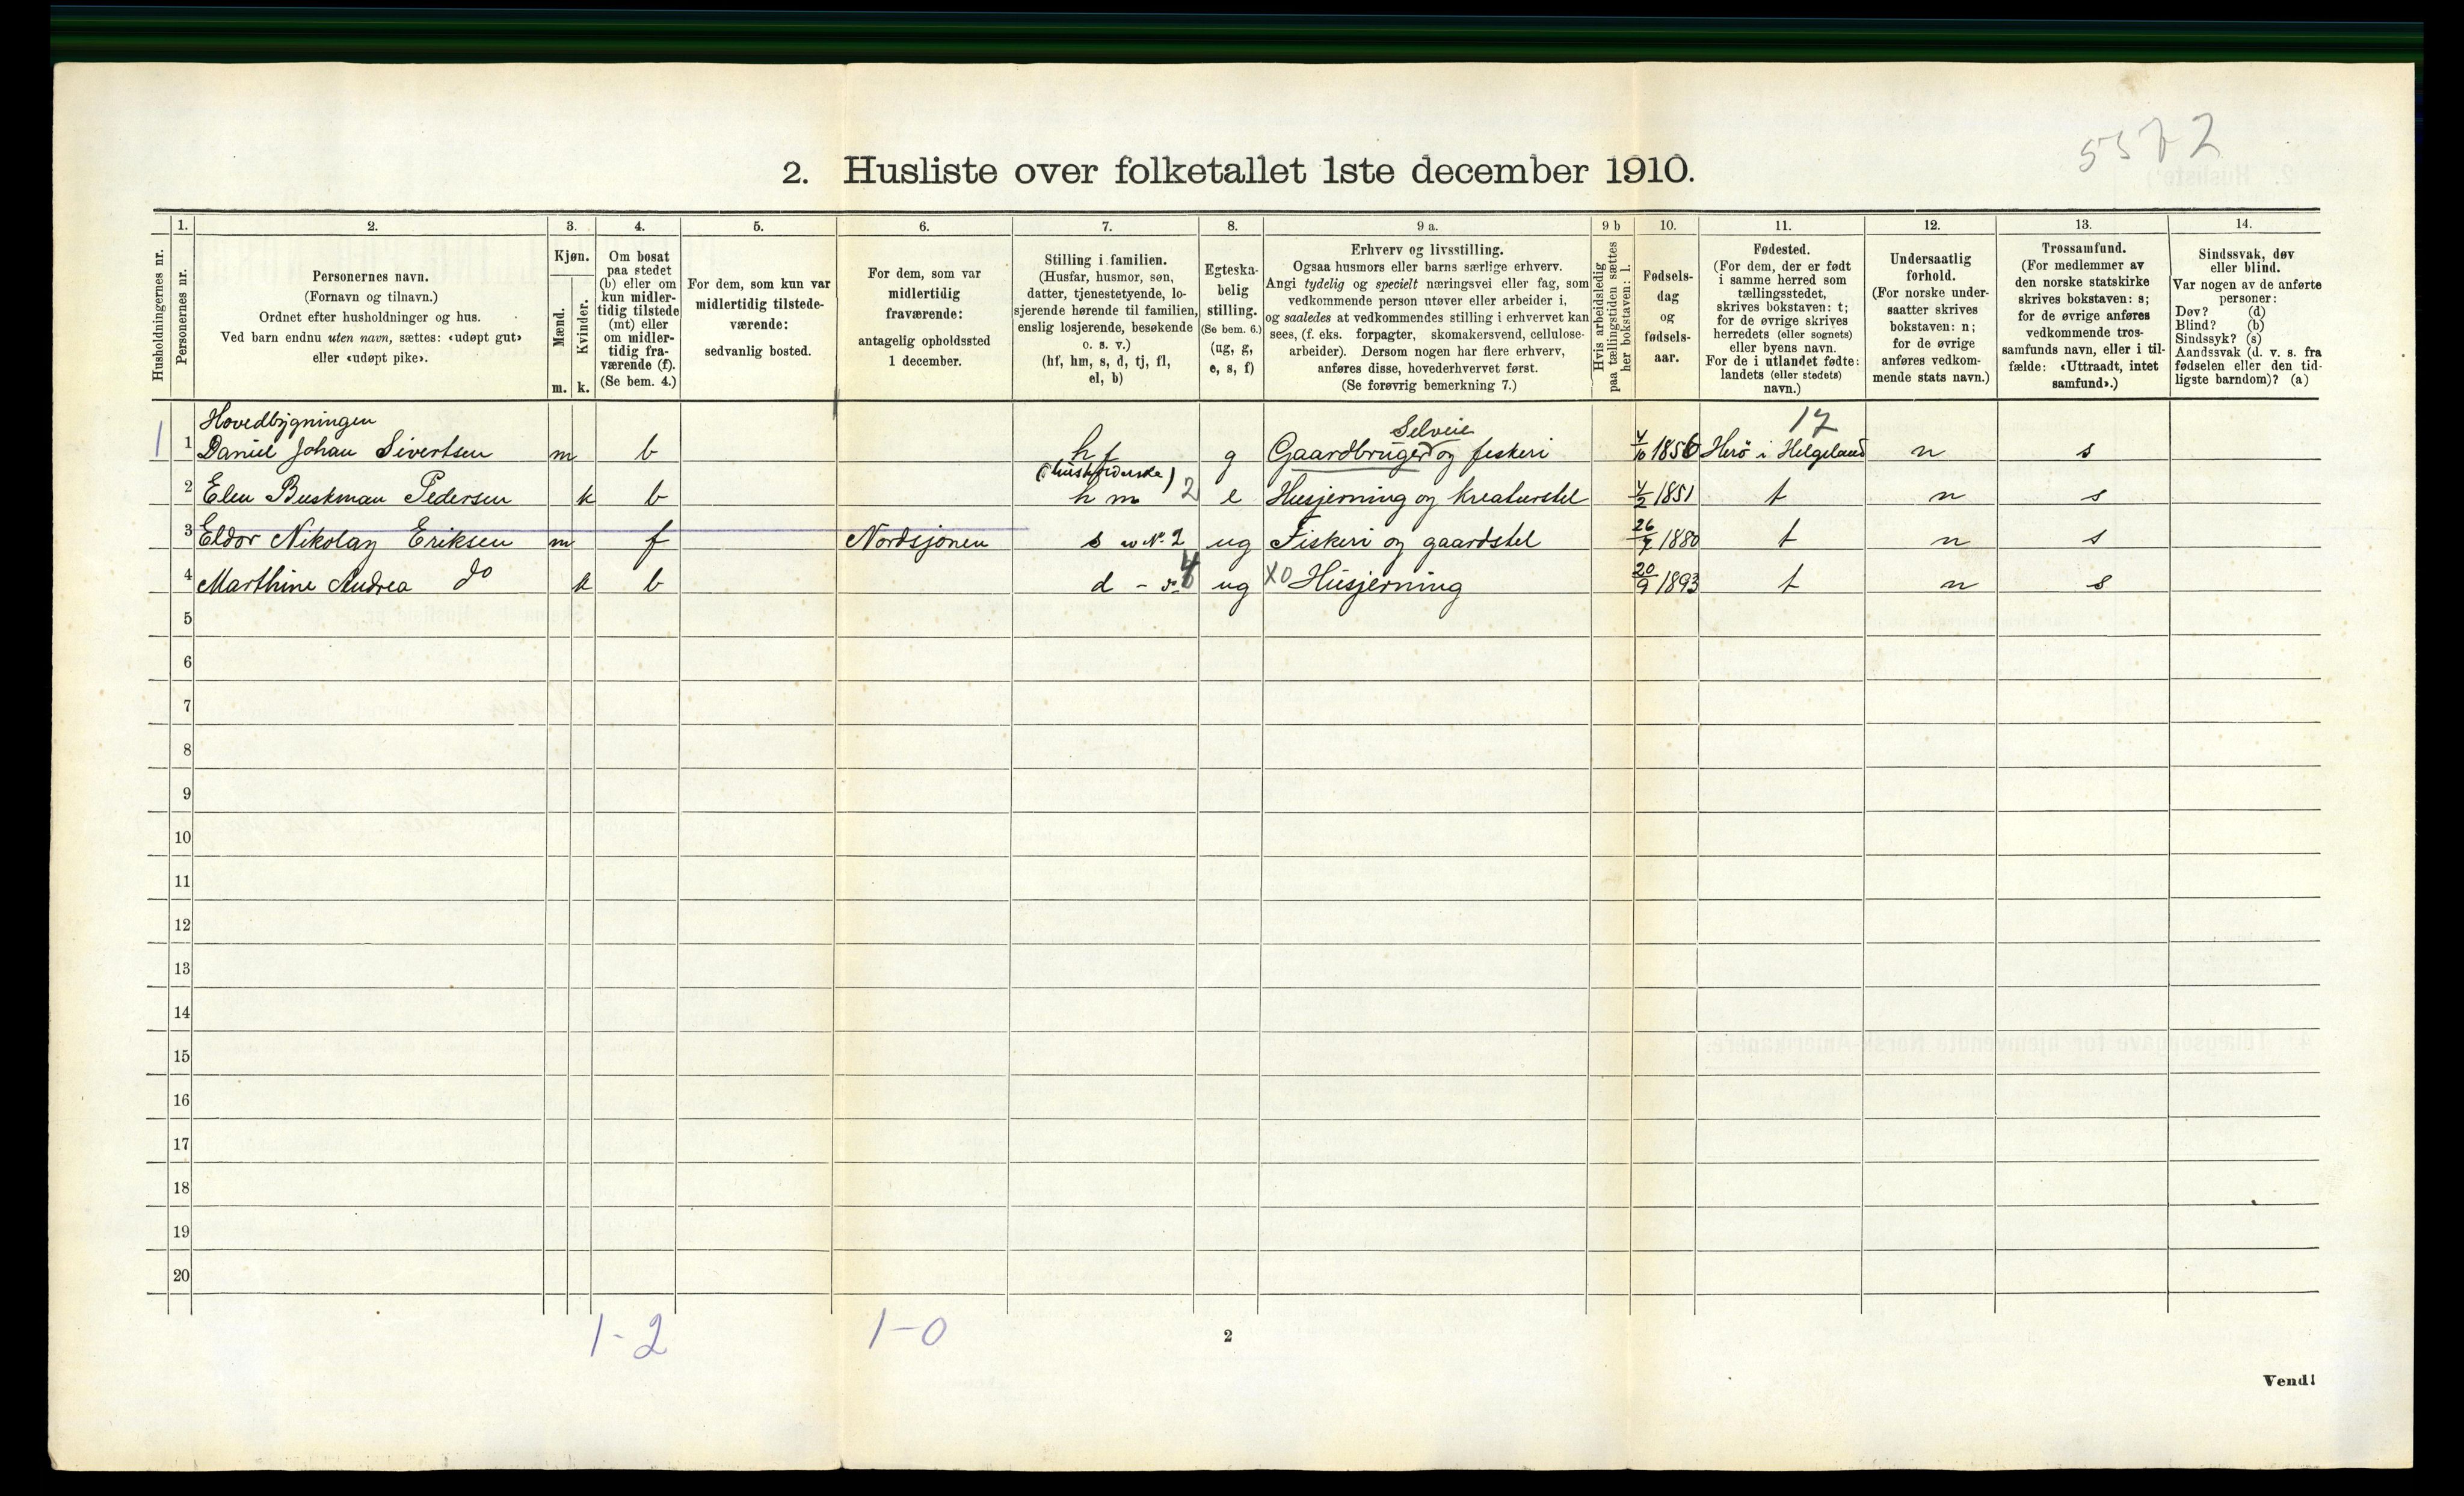 5572
2. Husliste over folketallet 1ste december 1910.
Husholdningernes nr.
1.
Personernes nr.
2.
Personernes navn.
(Fornavn og tilnavn.)
Ordnet efter husholdninger og hus.
Ved barn endnu uten navn, sættes: «udøpt gut»
eller «udøpt pike».
3.
Kjøn.
Mænd.
Kvinder.
m. k.
4.
Om bosat
paa stedet
(b) eller om
kun midler-
tidig tilstede
(mt) eller
om midler-
tidig fra-
værende (f).
(Se bem. 4.)
5.
For dem, som kun var
midlertidig tilstede-
værende:
sedvanlig bosted.
6.
For dem, som var
midlertidig
fraværende:
antagelig opholdssted
1 december.
7.
Stilling i familien.
(Husfar, husmor, søn,
datter, tjenestetyende, lo-
sjerende hørende til familien,
enslig losjerende, besøkende
o. s. v.)
(hf, hm, s, d, tj, fl,
el, b)
8.
Egteska-
belig
stilling.
(Se bem. 6.)
(ug, g,
e, s, f)
9 a.
Erhverv og livsstilling.
Ogsaa husmors eller barns særlige erhverv.
Angi tydelig og specielt næringsvei eller fag, som
vedkommende person utøver eller arbeider i,
og saaledes at vedkommendes stilling i erhvervet kan
sees, (f. eks. forpagter, skomakersvend, cellulose-
arbeider). Dersom nogen har flere erhverv,
anføres disse, hovederhvervet først.
(Se forøvrig bemerkning 7.)
9 b
Hvis arbeidsledig
paa tællingstiden sættes
her bokstaven: l.
10.
Fødsels-
dag
og
fødsels-
aar.
11.
Fødested.
(For dem, der er født
i samme herred som
tællingsstedet,
skrives bokstaven: t;
for de øvrige skrives
herredets (eller sognets)
eller byens navn.
For de i utlandet fødte:
landets (eller stedets)
navn.)
12.
Undersaatlig
forhold.
(For norske under-
saatter skrives
bokstaven: n;
for de øvrige
anføres vedkom-
mende stats navn.)
13.
Trossamfund.
(For medlemmer av
den norske statskirke
skrives bokstaven: s;
for de øvrige anføres
vedkommende tros-
samfunds navn, eller i til-
fælde: «Uttraadt, intet
samfund».)
14.
Sindssvak, døv
eller blind.
Var nogen av de anførte
personer:
Døv? (d)
Blind? (b)
Sindssyk? (s)
Aandssvak (d. v. s. fra
fødselen eller den tid-
ligste barndom)? (a)
Hovedbygningen
Selveie 17
1 1 Daniel Johan Sivertsen m b hf g Gaardbruger og fiskeri 4/10 1856 Herö i Helgeland n s
(husholderske)
2 Elen Buskman Pedersen k b hm 2 e Husjerning og kreaturstel 4/2 1851 t n s
3 Eldor Nikolay Eriksen m f Nordsjönen s No 2 ug Fiskeri og gaardstel 26/7 1880 t n s
4 Marthine Andrea do k b d - do 4 ug XO Husjerning 20/9 1893 t n s
5
6
7
8
9
10
11
12
13
14
15
16
17
18
19
20
1-2 1-0
2
Vend!